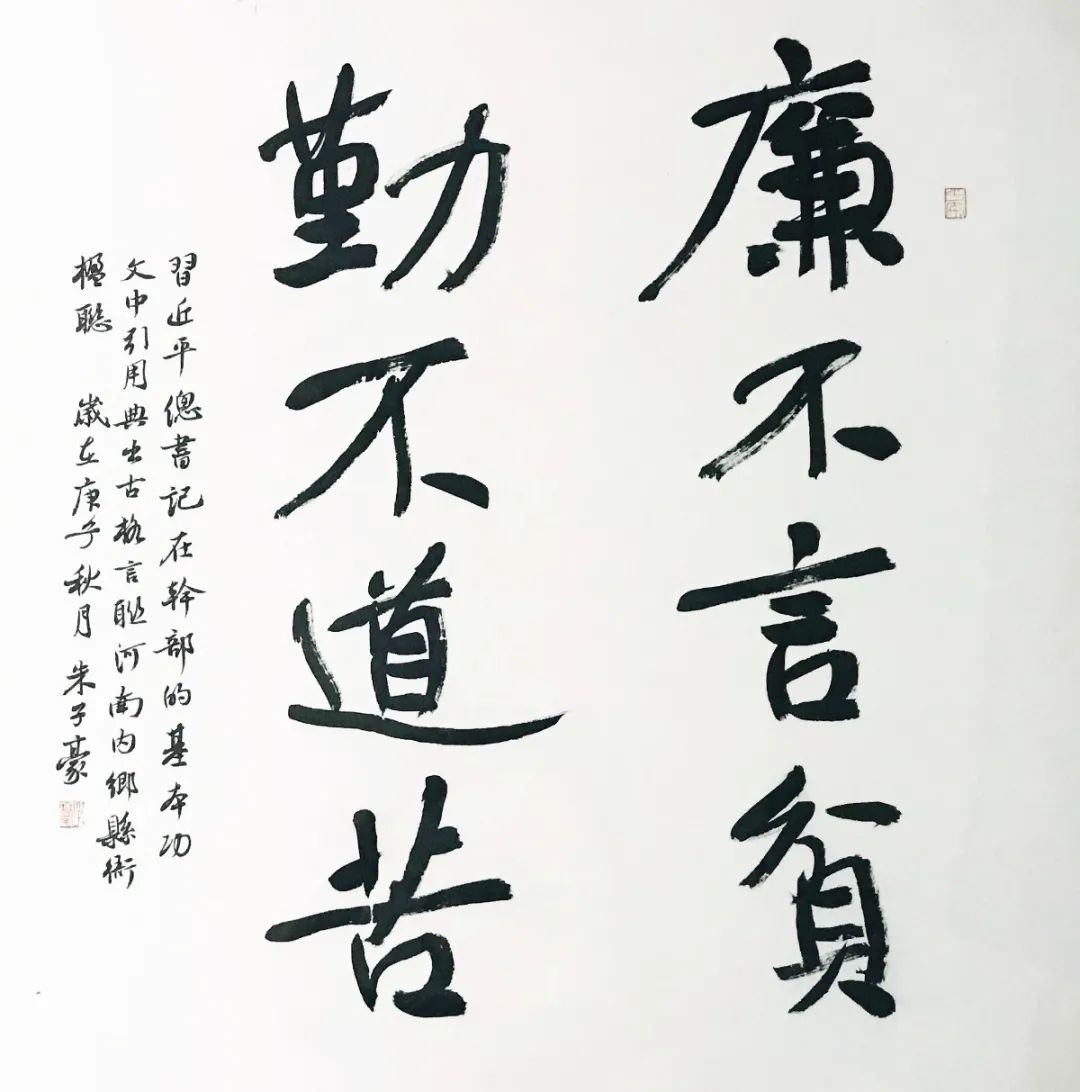 廉不言貧
勤不道苦
習近平總書記在幹部的基本功
文中引用典出古格言聯河南内鄉縣衙
楹聯 歲在庚子秋月 朱子豪